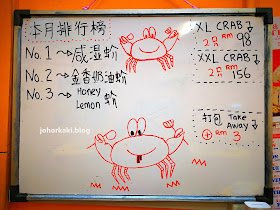 本月排行榜
No.1 → 咸湿蚧
No.2 → 金香奶油蚧
No.3 → Honey Lemon 蚧
XL CRAB
2只 RM 98
XXL CRAB
2只 RM 156
打包 Take Away
+ RM 3
johorkaki.blog